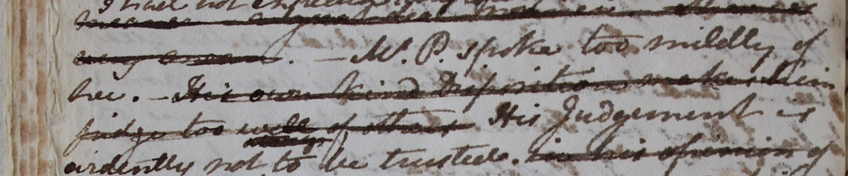 I shall not
means a great deal
very mean. — Mr. P. spoke too mildly of
her. — His own kind Disposition makes him
judge too well of others His Judgement is
evidently not to be trusted. in his opinion of